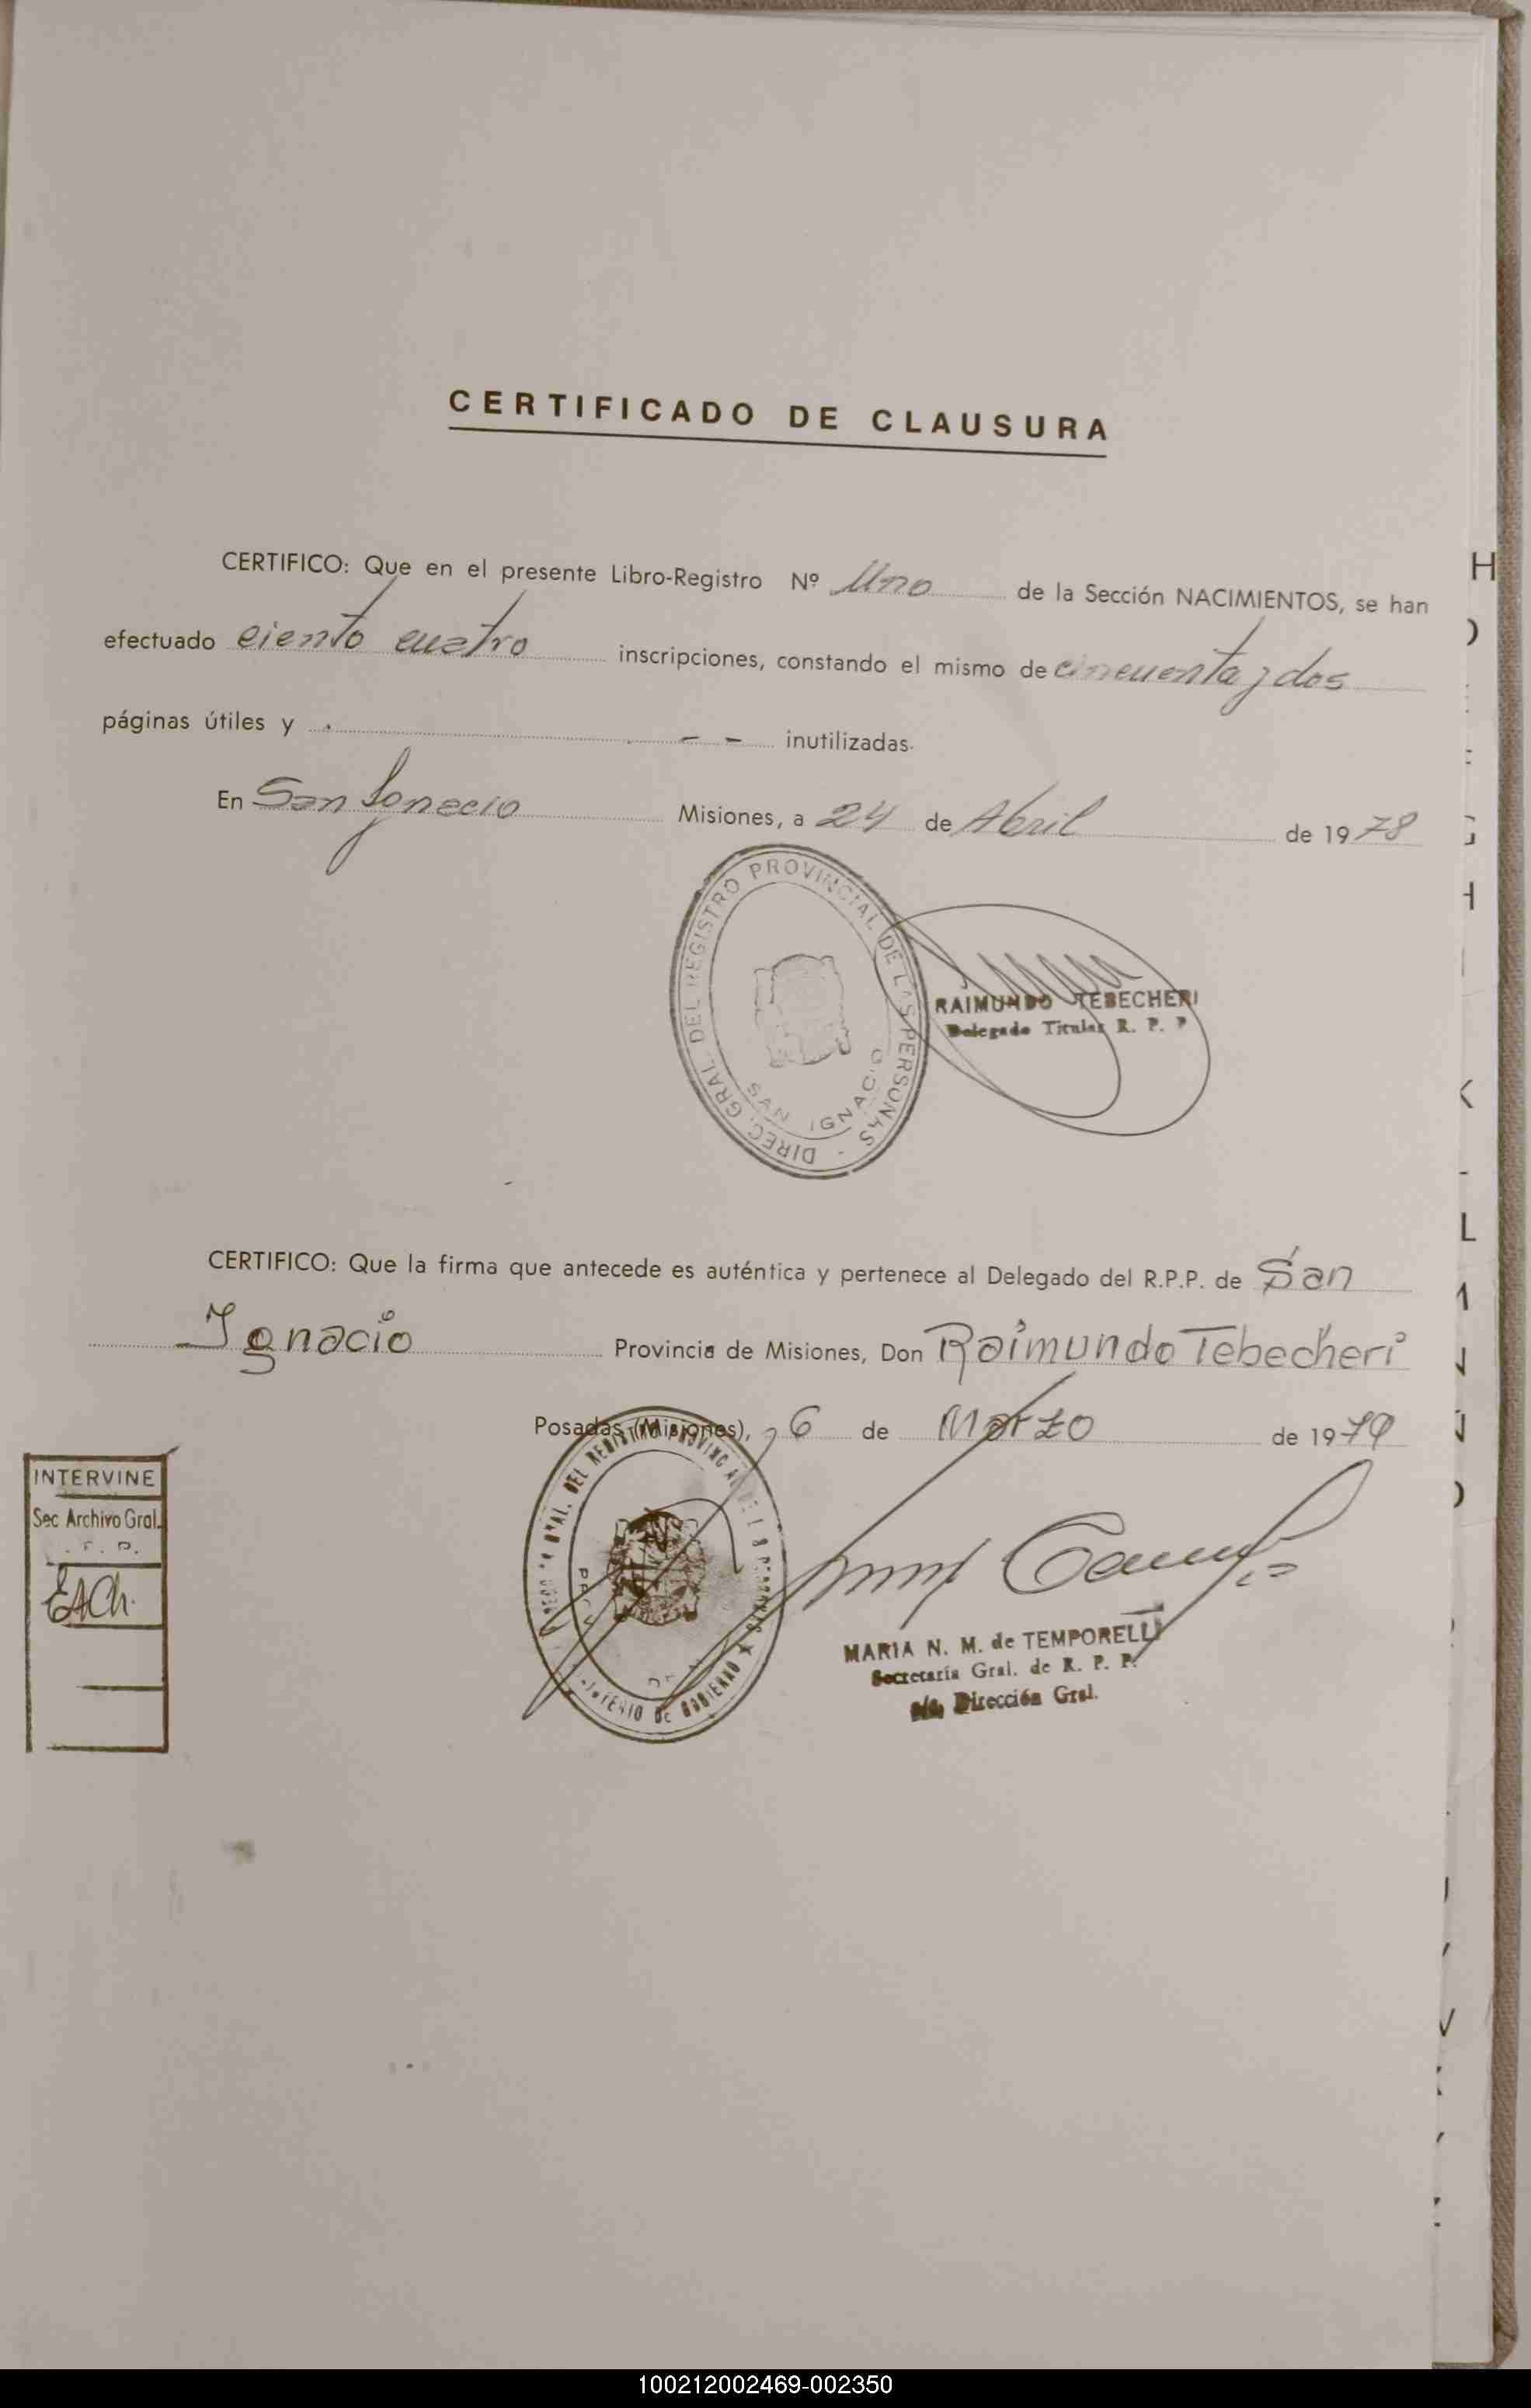 CERTIFICADO DE CLAUSURA
CERTIFICO: Que en el presente Libro-Registro Nº Uno de la Sección NACIMIENTOS, se han
efectuado ciento cuatro inscripciones, constando el mismo de cincuenta y dos
páginas útiles y . - - inutilizadas.
En San Ignacio Misiones, a 24 de Abril de 1978
DIREC. GRAL. DEL REGISTRO PROVINCIAL DE LAS PERSONAS -
SAN IGNACIO
RAIMUNDO TEBECHERI
Delegado Titular R. P. P
CERTIFICO: Que la firma que antecede es auténtica y pertenece al Delegado del R.P.P. de San
Ignacio Provincia de Misiones, Don Raimundo Tebecheri
Posadas (Misiones), 6 de Marzo de 1979
INTERVINE
Sec Archivo Gral.
EACh.
DE GOBIERNO
MARIA N. M. de TEMPORELLI
Secretaria Gral. de R. P. P.
Dirección Gral.
H
L
100212002469-002350